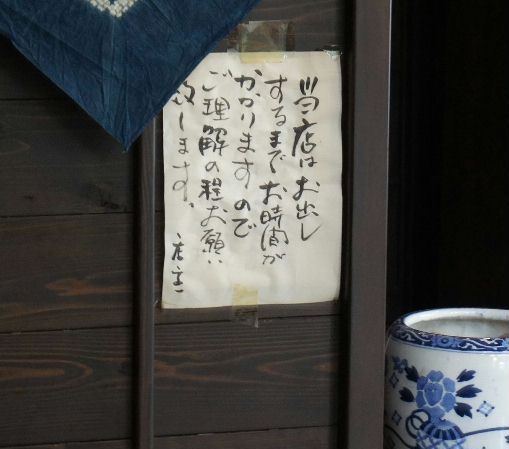 当店はお出し
するまでお時間が
かかりますので
ご理解の程お願い
致します。
店主